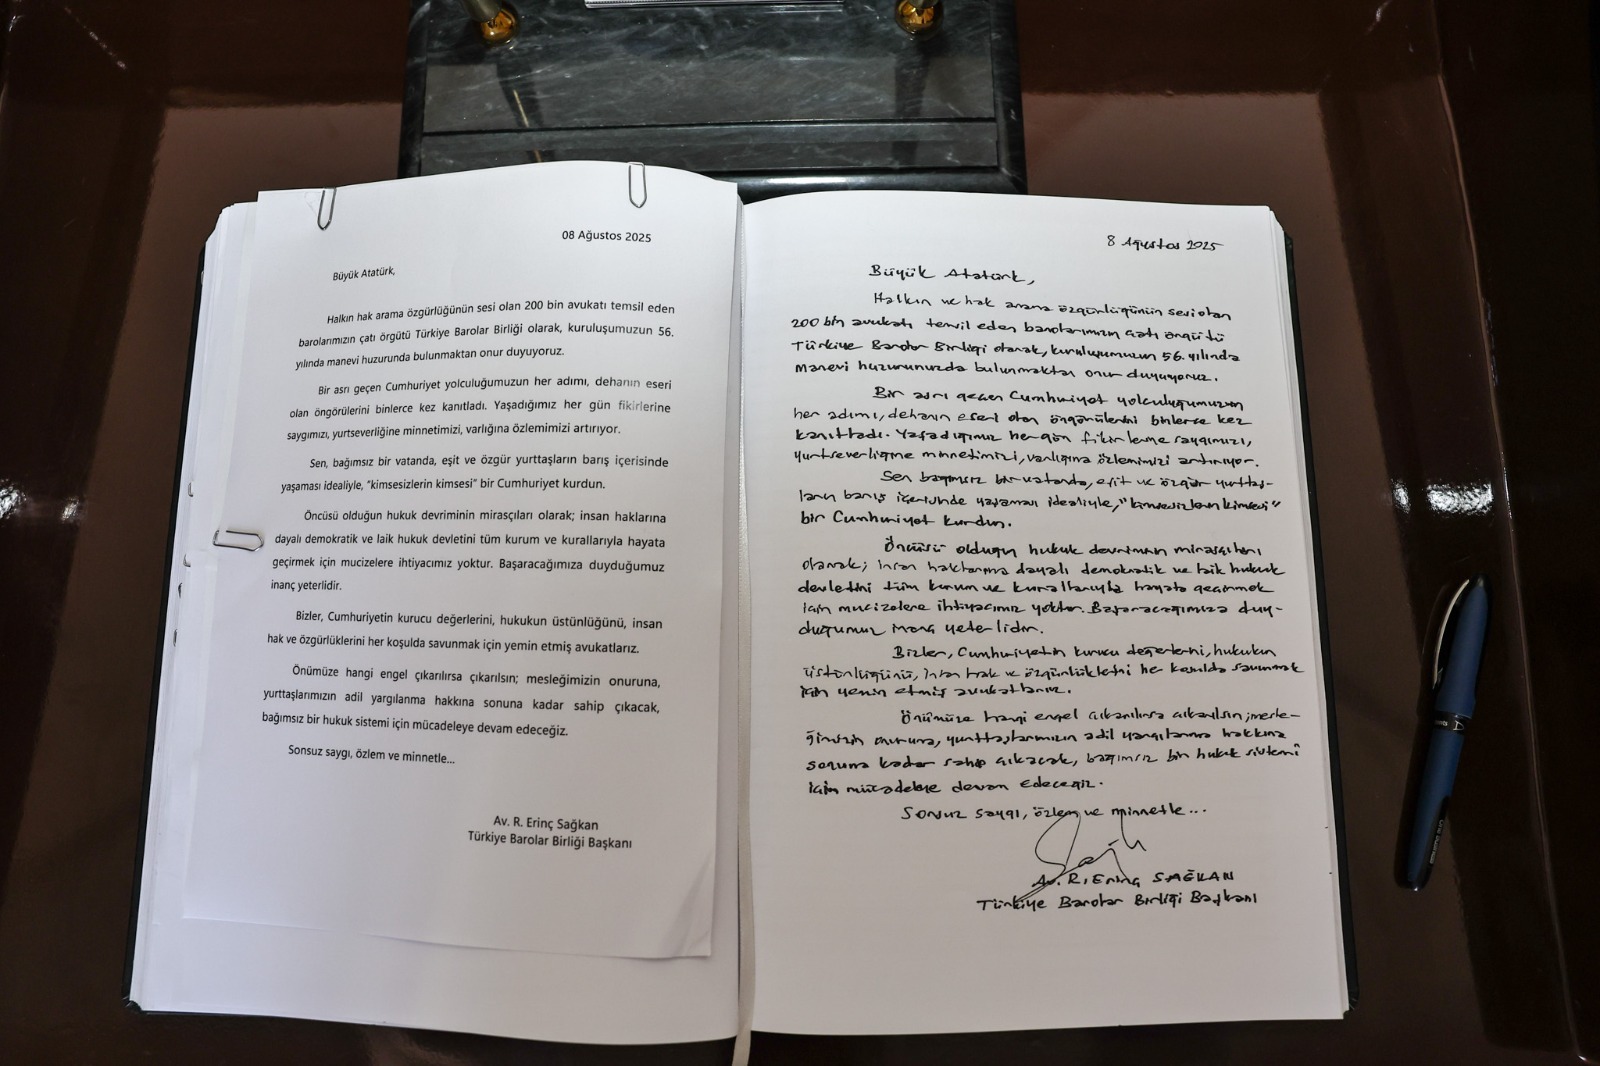 08 Ağustos 2025
Büyük Atatürk,
Halkın hak arama özgürlüğünün sesi olan 200 bin avukatı temsil eden
barolarımızın çatı örgütü Türkiye Barolar Birliği olarak, kuruluşumuzun 56.
yılında manevi huzurunda bulunmaktan onur duyuyoruz.
Bir asrı geçen Cumhuriyet yolculuğumuzun her adımı, dehanın eseri
olan öngörülerini binlerce kez kanıtladı. Yaşadığımız her gün fikirlerine
saygımızı, yurtseverliğine minnetimizi, varlığına özlemimizi artırıyor.
Sen, bağımsız bir vatanda, eşit ve özgür yurttaşların barış içerisinde
yaşaması idealiyle, "kimsesizlerin kimsesi" bir Cumhuriyet kurdun.
Öncüsü olduğun hukuk devriminin mirasçıları olarak; insan haklarına
dayalı demokratik ve laik hukuk devletini tüm kurum ve kurallarıyla hayata
geçirmek için mucizelere ihtiyacımız yoktur. Başaracağımıza duyduğumuz
inanç yeterlidir.
Bizler, Cumhuriyetin kurucu değerlerini, hukukun üstünlüğünü, insan
hak ve özgürlüklerini her koşulda savunmak için yemin etmiş avukatlarız.
Önümüze hangi engel çıkarılırsa çıkarılsın; mesleğimizin onuruna,
yurttaşlarımızın adil yargılanma hakkına sonuna kadar sahip çıkacak,
bağımsız bir hukuk sistemi için mücadeleye devam edeceğiz.
Sonsuz saygı, özlem ve minnetle...
Av. R. Erinç Sağkan
Türkiye Barolar Birliği Başkanı
8 Ağustos 2025
Büyük Atatürk,
Halkın ve hak arama özgürlüğünün sesi olan
200 bin avukatı temsil eden barolarımızın çatı örgütü
Türkiye Barolar Birliği olarak, kuruluşumuzun 56. yılında
manevi huzurunuzda bulunmaktan onur duyuyoruz.
Bir asrı geçen Cumhuriyet yolculuğumuzun
her adımı, dehanın eseri olan öngörülerini binlerce kez
kanıtladı. Yaşadığımız her gün fikirlerine saygımızı,
yurtseverliğine minnetimizi, varlığına özlemimizi artırıyor.
Sen bağımsız bir vatanda, eşit ve özgür yurttaş-
ların barış içerisinde yaşaması idealiyle, "kimsesizlerin kimsesi"
bir Cumhuriyet kurdun.
Öncüsü olduğun hukuk devriminin mirasçıları
olarak; insan haklarına dayalı demokratik ve laik hukuk
devletini tüm kurum ve kurallarıyla hayata geçirmek
için mucizelere ihtiyacımız yoktur. Başaracağımıza duy-
duğumuz inanç yeterlidir.
Bizler, Cumhuriyetin kurucu değerlerini, hukukun
üstünlüğünü, insan hak ve özgürlüklerini her koşulda savunmak
için yemin etmiş avukatlarız.
Önümüze hangi engel çıkarılırsa çıkarılsın; mesle-
ğimizin onuruna, yurttaşlarımızın adil yargılanma hakkına
sonuna kadar sahip çıkacak, bağımsız bir hukuk sistemi
için mücadeleye devam edeceğiz.
Sonsuz saygı, özlem ve minnetle...
Av. R. Erinç SAĞKAN
Türkiye Barolar Birliği Başkanı